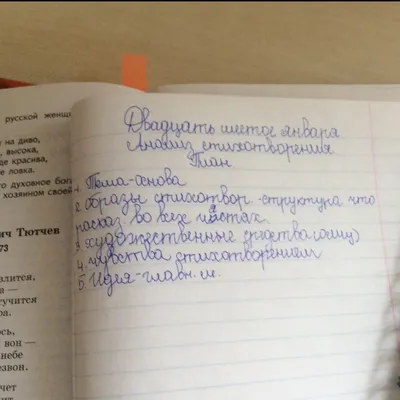 русской женщ
е на диво,
высока,
де красива,
ловка.
то духовное бог
хозяином своей
ич Тютчев
73
злится,
а —
тучится
ра.
ось,
вон —
небе
звон.
чет
Двадцать шестое января
Анализ стихотворения
План
1. Тема-основа
2. образы стихотвор.-структура что
расказ. во всех частях.
3. художественные средства (олиц)
4. чувства стихотворением
5. Идея-главн. м.